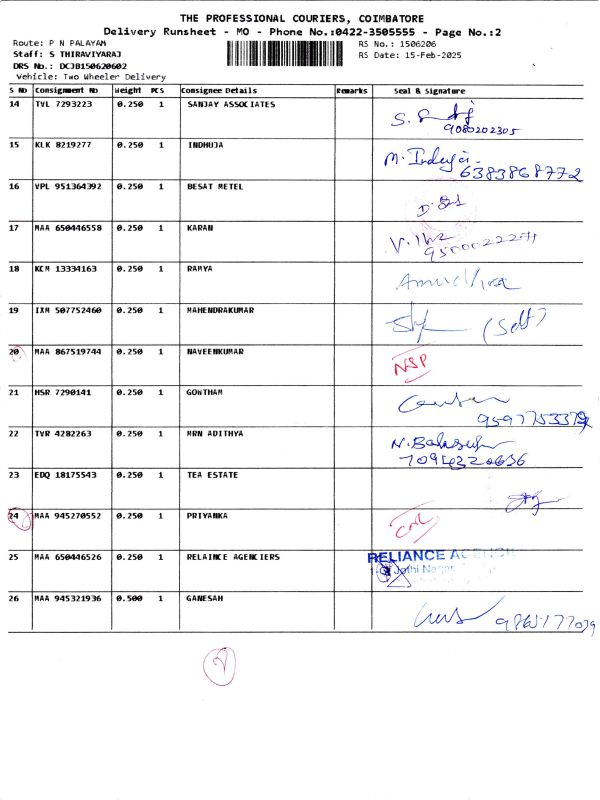 THE PROFESSIONAL COURIERS, COIMBATORE
Delivery Runsheet - MO - Phone No.:0422-3505555 - Page No.:2
Route: P N PALAYAM RS No.: 1506206
Staff: S THIRAVIYARAJ RS Date: 15-Feb-2025
DRS No.: DCJB150620602
Vehicle: Two Wheeler Delivery
S No Consignment No Weight PCS Consignee Details Remarks Seal & Signature
14 TVL 7293223 0.250 1 SANJAY ASSOCIATES
9080202305
15 KLK 8219277 0.250 1 INDHUJA M. Induja
6383868772
16 VPL 951364392 0.250 1 BESAT METEL
17 MAA 650446558 0.250 1 KARAN
18 KCM 13334163 0.250 1 RAMYA
19 IXM 507752460 0.250 1 MAHENDRAKUMAR (Self)
20 MAA 867519744 0.250 1 NAVEENKUMAR NSP
21 HSR 7290141 0.250 1 GOWTHAM
22 TVR 4282263 0.250 1 MRN ADITHYA
7094320636
23 EDQ 18175543 0.250 1 TEA ESTATE
24 MAA 945270552 0.250 1 PRIYANKA
25 MAA 650446526 0.250 1 RELAINCE AGENCIERS RELIANCE
26 MAA 945321936 0.500 1 GANESAH